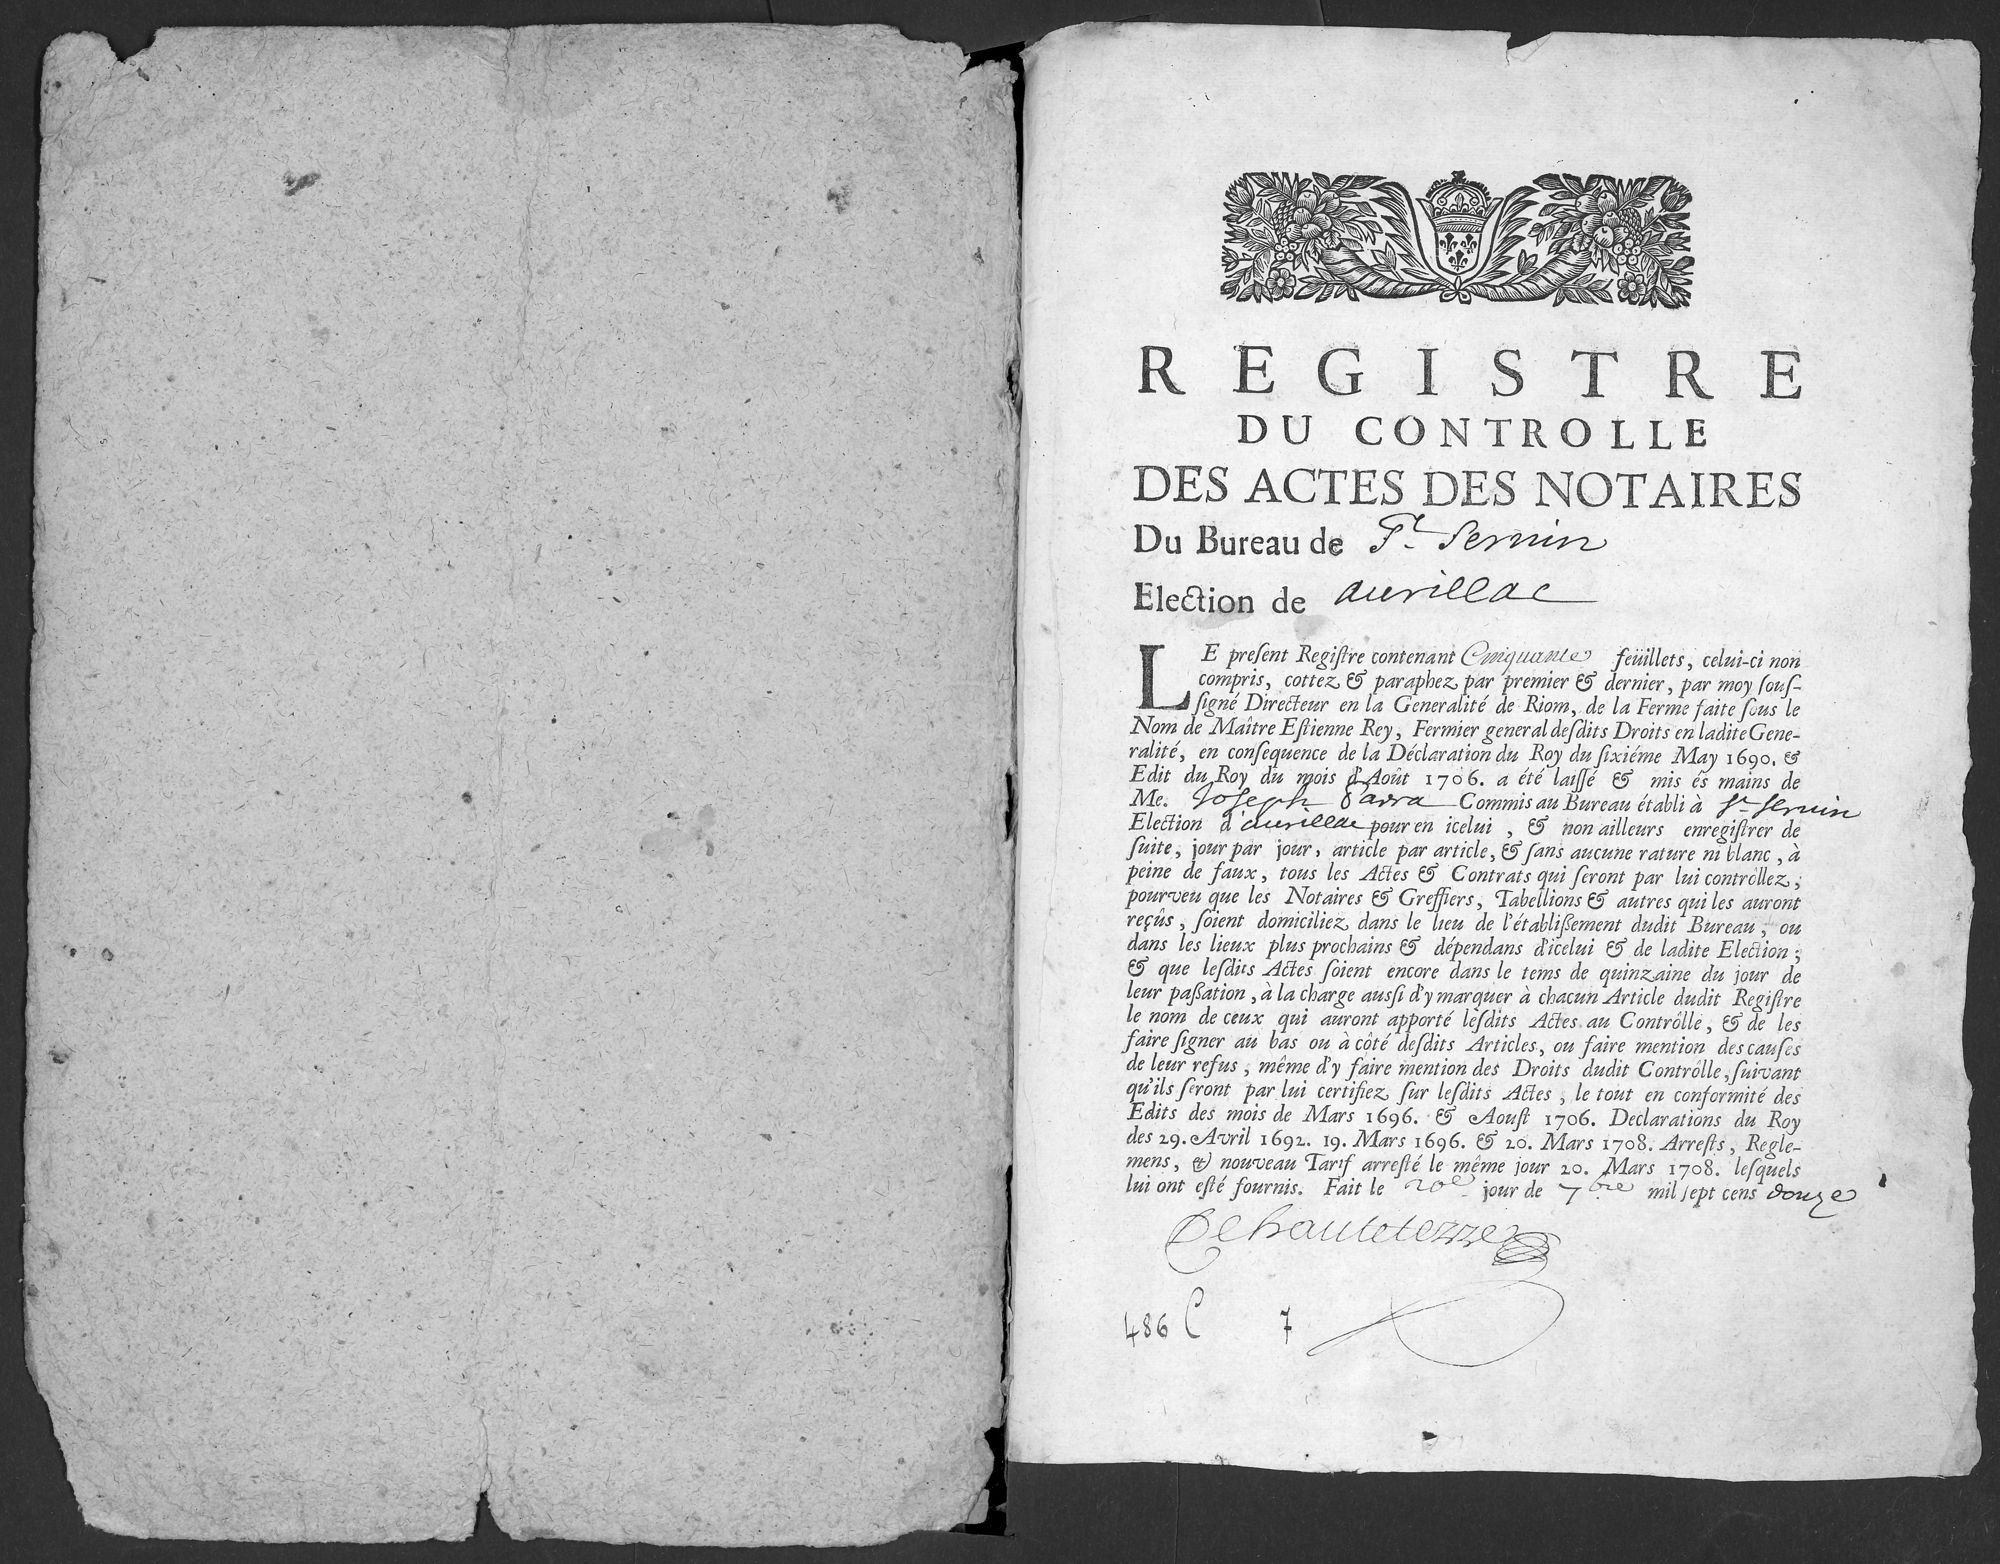 REGISTRE
DU CONTROLLE
DES ACTES DES NOTAIRES
Du Bureau de St. Sernin
Election de aurillac
LE preſent Regiſtre contenant Cinquante feüillets, celui-ci non
compris, cottez & paraphez par premier & dernier, par moy ſouſ-
ſigné Directeur en la Generalité de Riom, de la Ferme faite ſous le
Nom de Maître Eſtienne Rey, Fermier general deſdits Droits en ladite Gene-
ralité, en conſequence de la Déclaration du Roy du ſixiéme May 1690. &
Edit du Roy du mois d'Août 1706. a été laiſſé & mis és mains de
Me. Joseph Parra Commis au Bureau établi à St. Sernin
Election d'aurillac pour en icelui, & non ailleurs enregiſtrer de
ſuite, jour par jour, article par article, & ſans aucune rature ni blanc, à
peine de faux, tous les Actes & Contrats qui ſeront par lui contrôllez,
pourveu que les Notaires & Greffiers, Tabellions & autres qui les auront
reçûs, ſoient domiciliez dans le lieu de l'établiſſement dudit Bureau, ou
dans les lieux plus prochains & dépendans d'icelui & de ladite Election;
& que leſdits Actes ſoient encore dans le tems de quinzaine du jour de
leur paſſation, à la charge auſſi d'y marquer à chacun Article dudit Regiſtre
le nom de ceux qui auront apporté leſdits Actes au Contrôlle, & de les
faire ſigner au bas ou à côté deſdits Articles, ou faire mention des cauſes
de leur refus, même d'y faire mention des Droits dudit Contrôlle, ſuivant
qu'ils ſeront par lui certifiez ſur leſdits Actes, le tout en conformité des
Edits des mois de Mars 1696. & Aouſt 1706. Declarations du Roy
des 29. Avril 1692. 19. Mars 1696. & 20. Mars 1708. Arreſts, Regle-
mens, & nouveau Tarif arreſté le même jour 20. Mars 1708. leſquels
lui ont eſté fournis. Fait le 20e jour de 7bre mil ſept cens douze
Dehauteterre
486 C 7